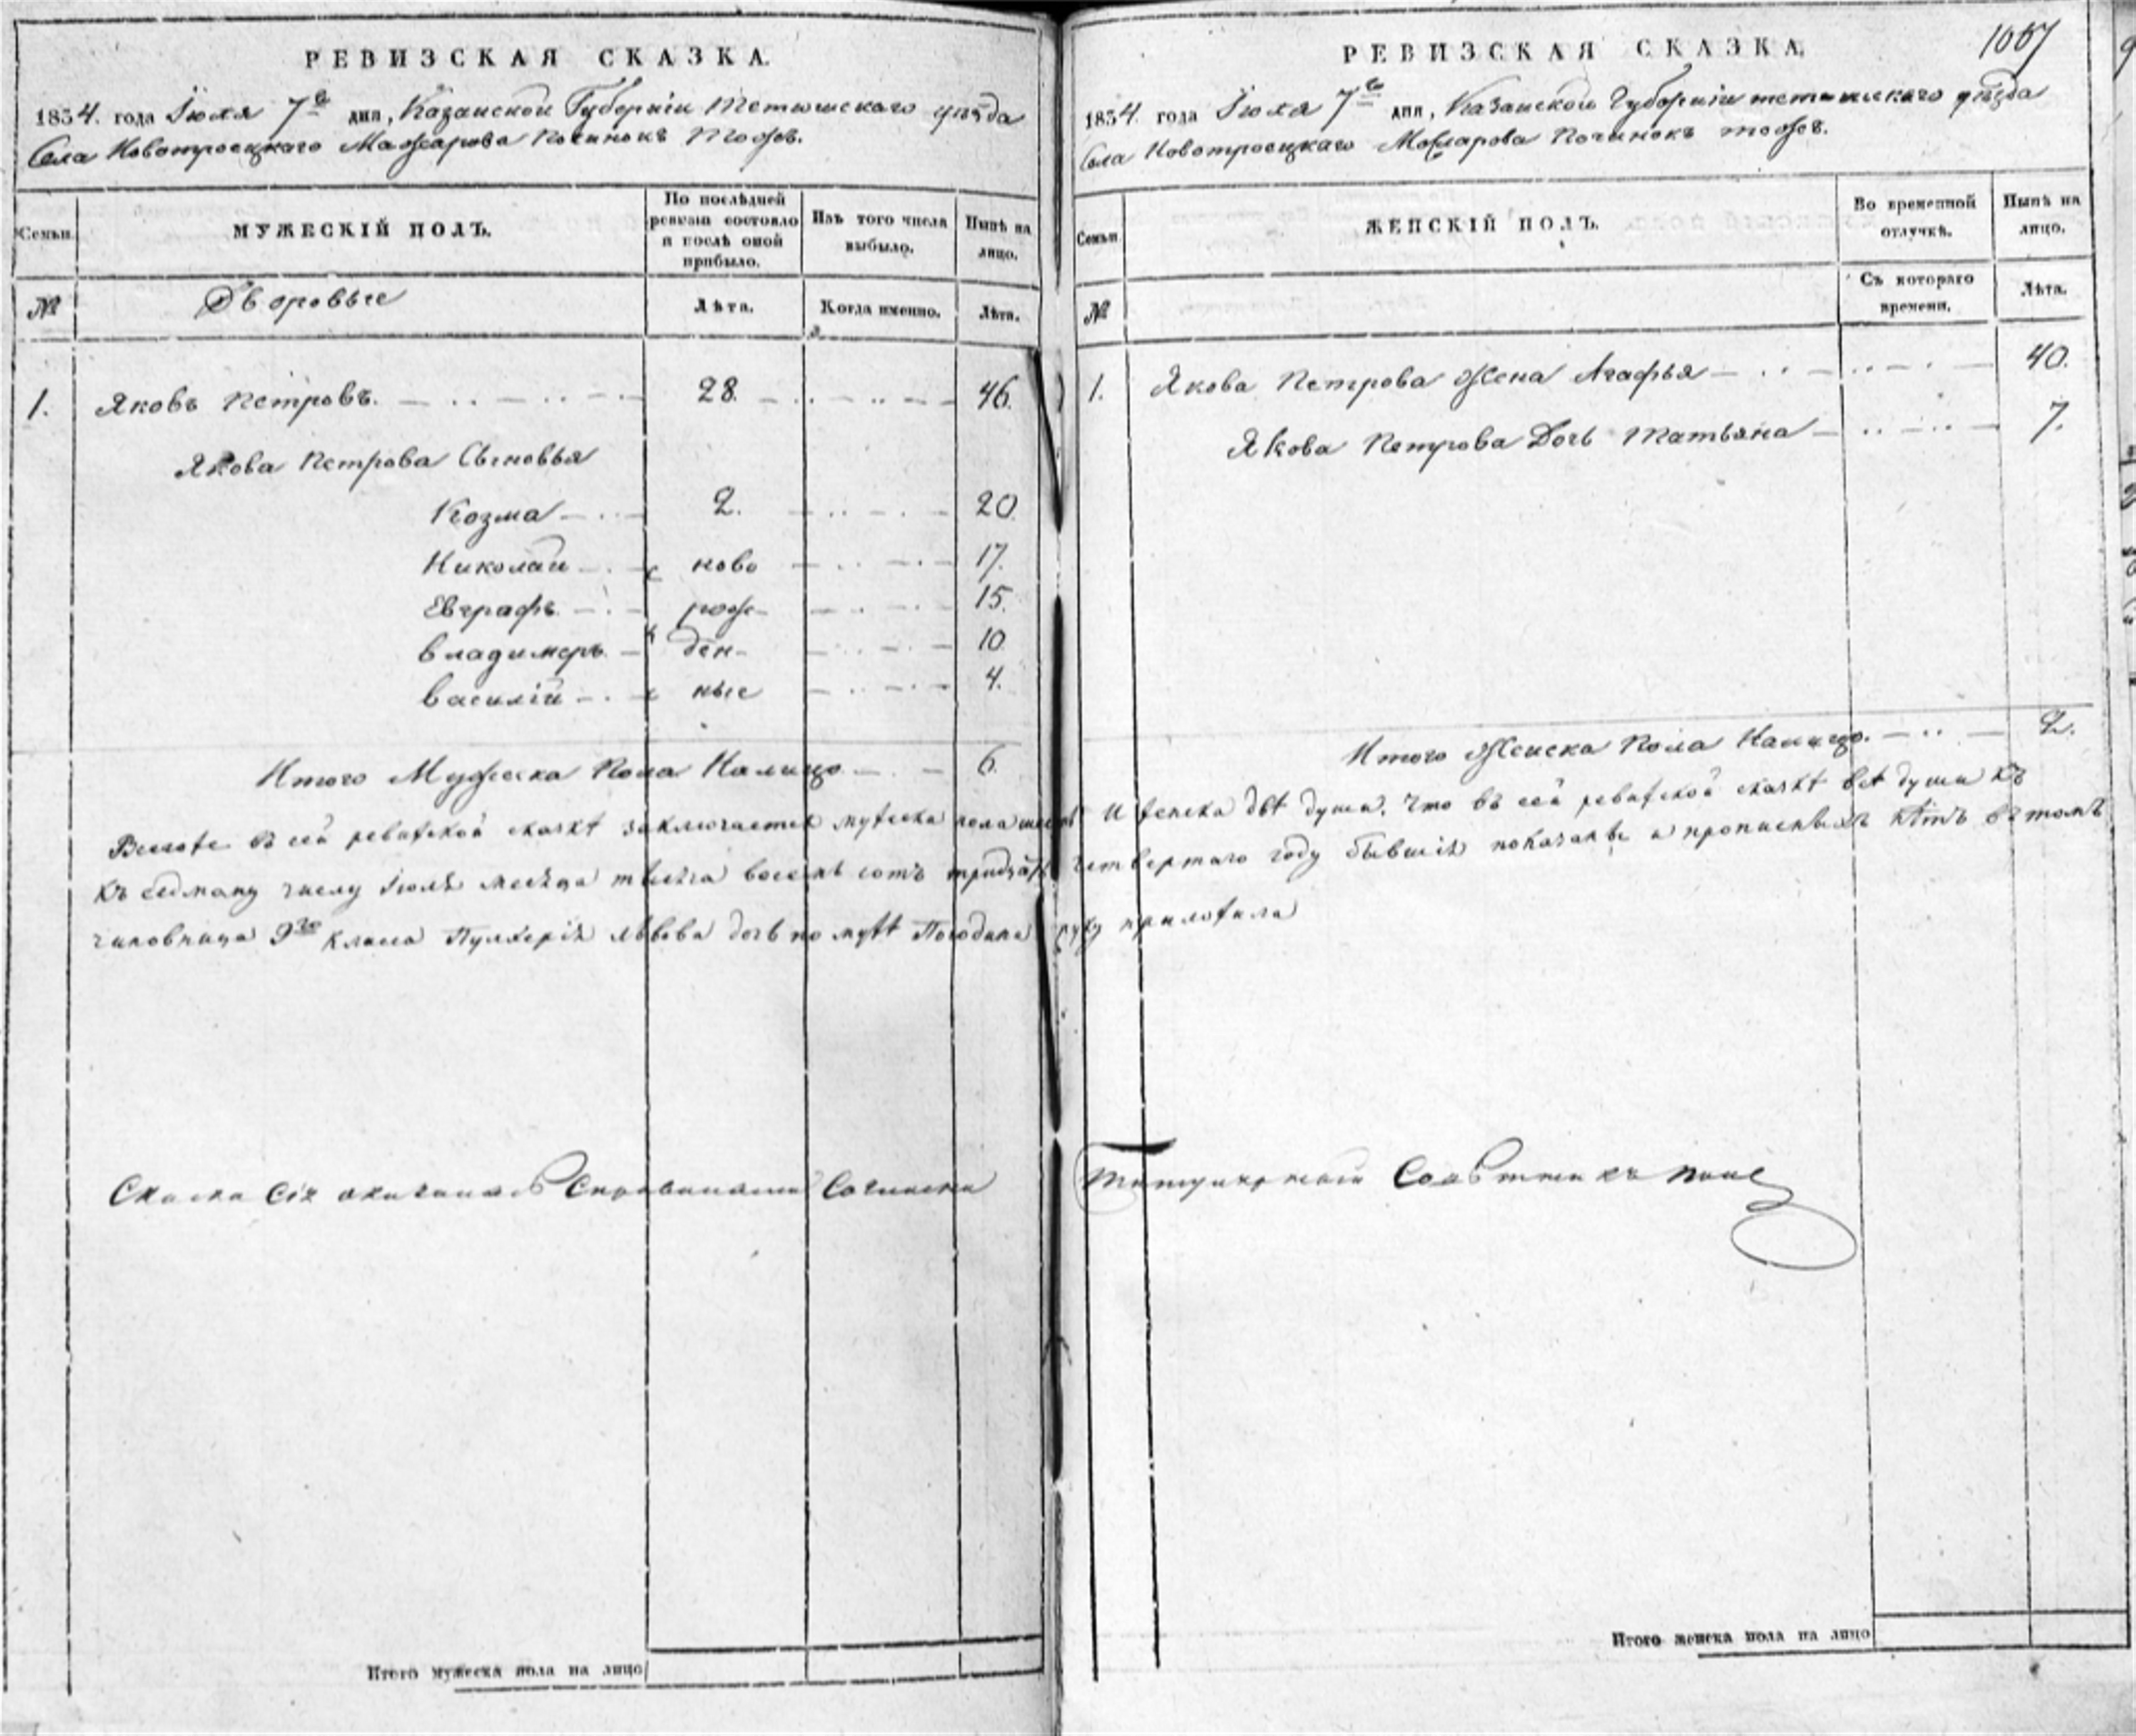 РЕВИЗСКАЯ СКАЗКА.
1834. года Іюля 7го дня, Казанской Губерніи Тетюшскаго уѣзда
Села Новотроецкаго Мажарова Починокъ тожъ.
Семьи.
МУЖЕСКІЙ ПОЛЪ.
По послѣдней ревизіи состояло и послѣ оной прибыло.
Изъ того числа выбыло.
Нынѣ на лицо.
№
Дворовые
Лѣта.
Когда именно.
Лѣта.
1. Яковъ Петровъ. 28. 46.
Якова Петрова Сыновья
Козма 2. 20.
Николай ново 17.
Евграфъ рож- 15.
Владимеръ ден- 10
Василій ные 4.
Итого Мужеска Пола Налицо 6.
РЕВИЗСКАЯ СКАЗКА.
1834. года Іюля 7го дня, Казанской Губерніи тетюшскаго уѣзда
Села Новотроецкаго Мажарова Починокъ тожъ.
Семьи
ЖЕНСКІЙ ПОЛЪ.
Во временной отлучкѣ.
Нынѣ на лицо.
№
Съ котораго времени.
Лѣта.
1. Якова Петрова Жена Агафья 40.
Якова Петрова Дочь Татьяна 7.
Итого Женска Пола Налицо. 2.
Всего же въ сей ревижской сказкѣ заключается мужеска пола шесть И женска двѣ души. Что въ сей ревижской сказкѣ всѣ души къ
къ седмому числу Іюля месяца тысяча восемь сотъ тридцать четвертаго году бывшія показаны и прописныхъ нѣтъ въ томъ
чиновница 9го класа Пулхерія Львова дочь по мужѣ Погодина руку приложила
Скаска Сія
Титулярный Советникъ
Итого мужеска пола на лицо
Итого женска пола на лицо